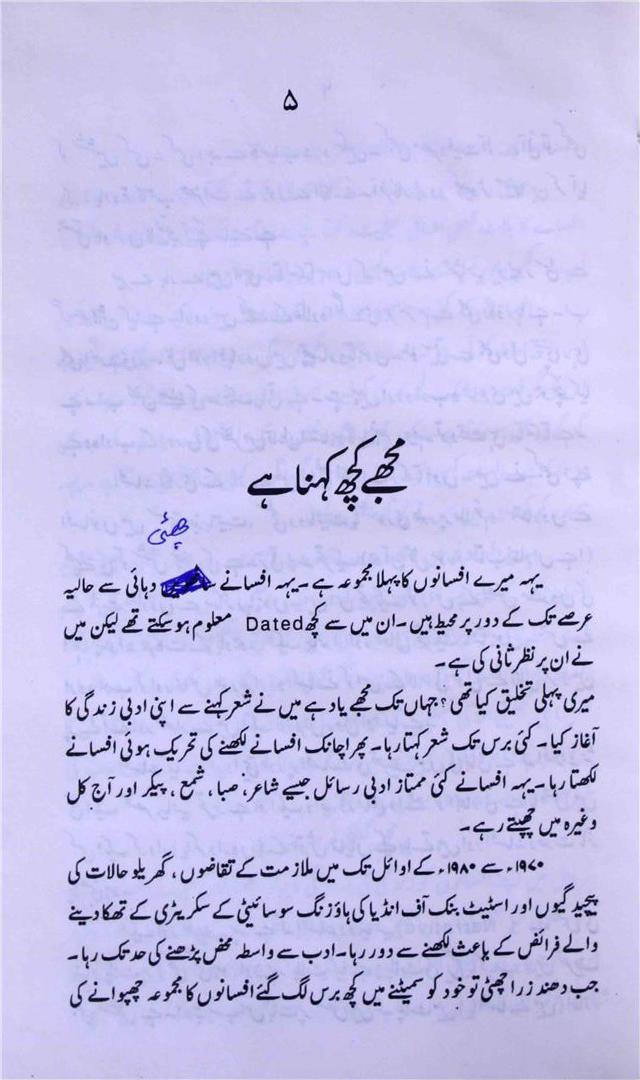 ۵
مجھے کچھ کہنا ہے
چھٹی
یہہ میرے افسانوں کا پہلا مجموعہ ہے۔ یہہ افسانے دہائی سے حالیہ
عرصے تک کے دور پر محیط ہیں۔ ان میں سے کچھ Dated معلوم ہو سکتے تھے لیکن میں
نے ان پر نظر ثانی کی ہے۔
میری پہلی تخلیق کیا تھی؟ جہاں تک مجھے یاد ہے میں نے شعر کہنے سے اپنی ادبی زندگی کا
آغاز کیا۔ کئی برس تک شعر کہتا رہا۔ پھر اچانک افسانے لکھنے کی تحریک ہوئی افسانے
لکھتا رہا۔ یہہ افسانے کئی ممتاز ادبی رسائل جیسے شاعر، صبا، شمع، پیکر اور آج کل
وغیرہ میں چھپتے رہے۔
۱۹۷۰ء سے ۱۹۸۰ء کے اوائل تک میں ملازمت کے تقاضوں، گھریلو حالات کی
پیچیدگیوں اور اسٹیٹ بنک آف انڈیا کی ہاؤزنگ سوسائیٹی کے سکریٹری کے تھکا دینے
والے فرائض کے باعث لکھنے سے دور رہا۔ ادب سے واسطہ محض پڑھنے کی حد تک رہا۔
جب دھند زرا چھٹی تو خود کو سمیٹنے میں کچھ برس لگ گئے افسانوں کا مجموعہ چھپوانے کی